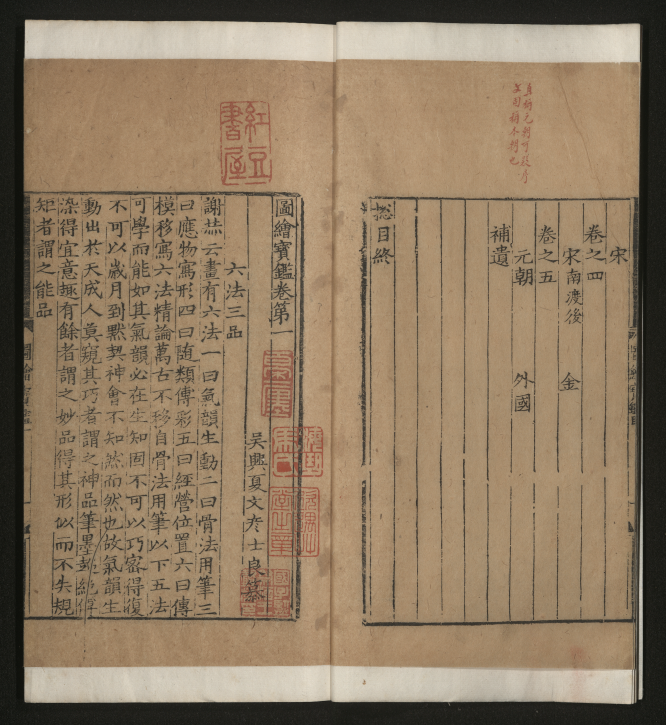 宋
卷之四
宋南渡後 金
卷之五
元朝 外國
補遺
総目終
圖繪寶鑑卷第一
吳興夏文彥士良纂
六法三品
謝恭云畫有六法一曰氣韻生動二曰骨法用筆三
曰應物寫形四曰随類傳彩五曰經營位置六曰傳
模移寫六法精論萬古不移自骨法用筆以下五法
可學而能如其氣韻必在生知固不可以巧密得復
不可以歲月到黙契神會不知然而然也故氣韻生
動出於天成人莫窺其巧者謂之神品筆墨超絶傅
染得宜意趣有餘者謂之妙品得其形似而不失規
矩者謂之能品
紅豆書屋